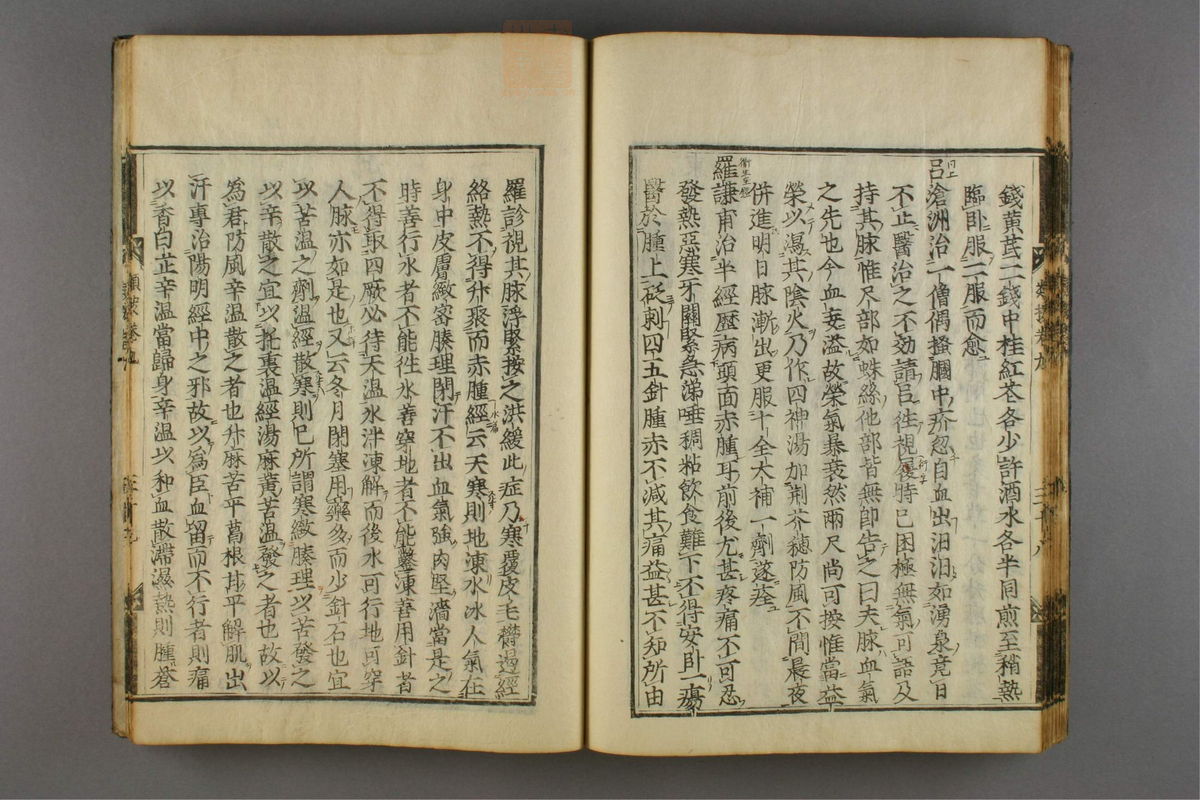 錢黄芪二錢中桂紅花各少許酒水各半同煎至稍熱
臨卧服二服而愈
同上
呂滄洲治一僧偶搔膕中疥忽自血出汩汩如湧泉竟日
不止醫治之不効請呂徃視履時已困極無氣可語及
持其脉惟尺部如蛛絲他部皆無即告之曰夫脉血氣
之先也今血妄溢故榮氣暴衰然兩尺尚可按惟當益
榮以瀉其陰火乃作四神湯加荆芥穗防風不間晨夜
併進明日脉漸出更服十全大補一劑遂痊
衛生宝鑑
羅謙甫治半經歷病頭面赤腫耳前後尤甚疼痛不可忍
發熱惡寒牙關緊急涕唾稠粘飲食難下不得安卧一瘍
醫於腫上砭刺四五針腫赤不減其痛益甚不知所由
類按卷九
三十八
羅診視其脉浮緊按之洪緩此症乃寒覆皮毛欝遏經
絡熱不得升聚而赤腫經云天寒則地凍水氷人氣在
身中皮膚緻密腠理閉汗不出血氣強肉堅濇當是之
時善行水者不能徃氷善穿地者不能鑿凍善用針者
不得取四厥必待天温氷泮凍解而後水可行地可穿
人脉亦如是也又云冬月閉塞用藥多而少針石也宜
以苦温之劑温經散寒則已所謂寒緻腠理以苦發之
以辛散之宜以托裏温經湯麻黄苦温發之者也故以
為君防風辛温散之者也升麻苦平葛根甘平解肌出
汗專治陽明經中之邪故以為臣血留而不行者則痛
以香白芷辛温當歸身辛温以和血散滞濕熱則腫蒼